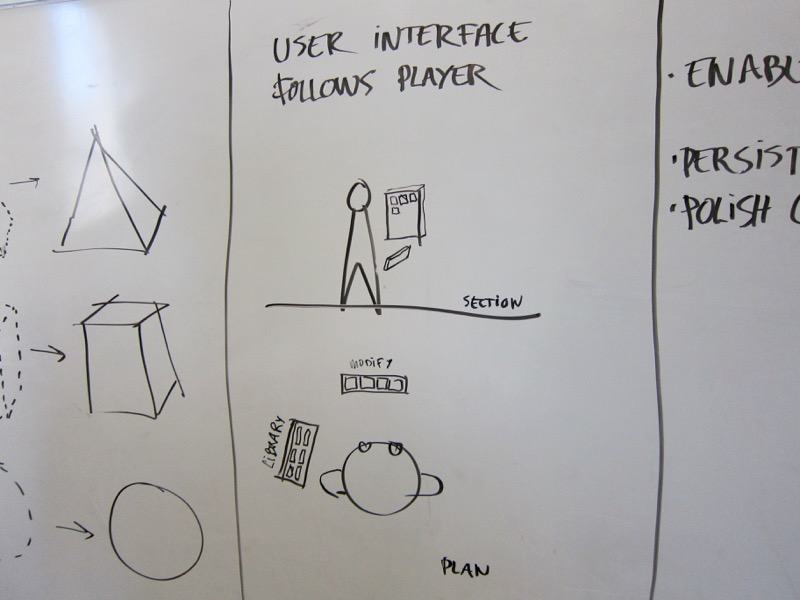 USER INTERFACE
FOLLOWS PLAYER
SECTION
MODIFY
LIBRARY
PLAN
· ENABL
· PERSIST
· POLISH